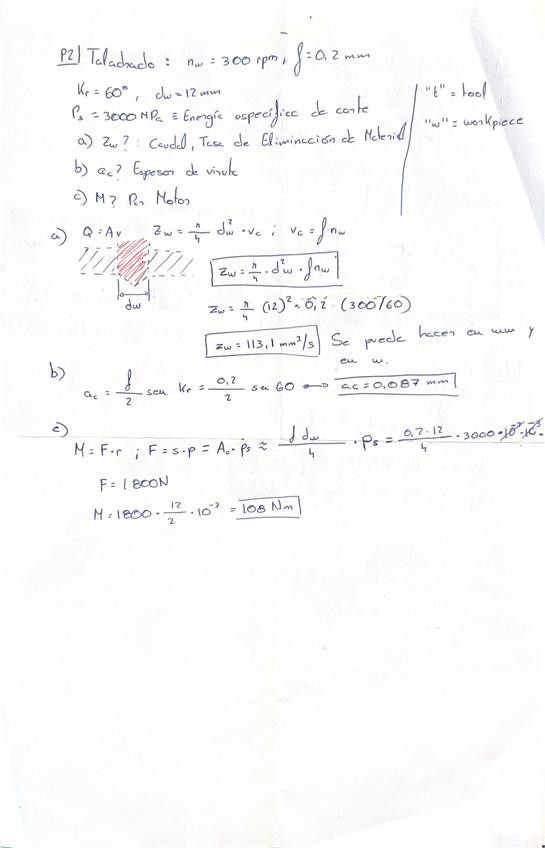 P2) Taladrado : nw = 300 rpm, f = 0,2 mm
Kr = 60°, dw = 12 mm
Ps = 3000 MPa ≡ Energía específica de corte
"t" = tool
"w" = workpiece
a) Zw? : Caudal, Tasa de Eliminación de Material
b) ac? Espesor de viruta
c) M? Par Motor
a) Q = Av Zw = π/4 dw² · vc ; vc = f · nw
Zw = π/4 · dw² · f nw
dw
Zw = π/4 (12)² · 0,2 · (300/60)
Zw = 113,1 mm³/s Se puede hacer en mm y
en m.
b)
ac = f/2 sen Kr = 0,2/2 sen 60 ⟶ ac = 0,087 mm
c)
M = F·r ; F = s·p = Ac · Ps ≈ f dw/4 · Ps = 0,2 · 12/4 · 3000
F = 1800N
M = 1800 · 12/2 · 10⁻³ = 108 Nm